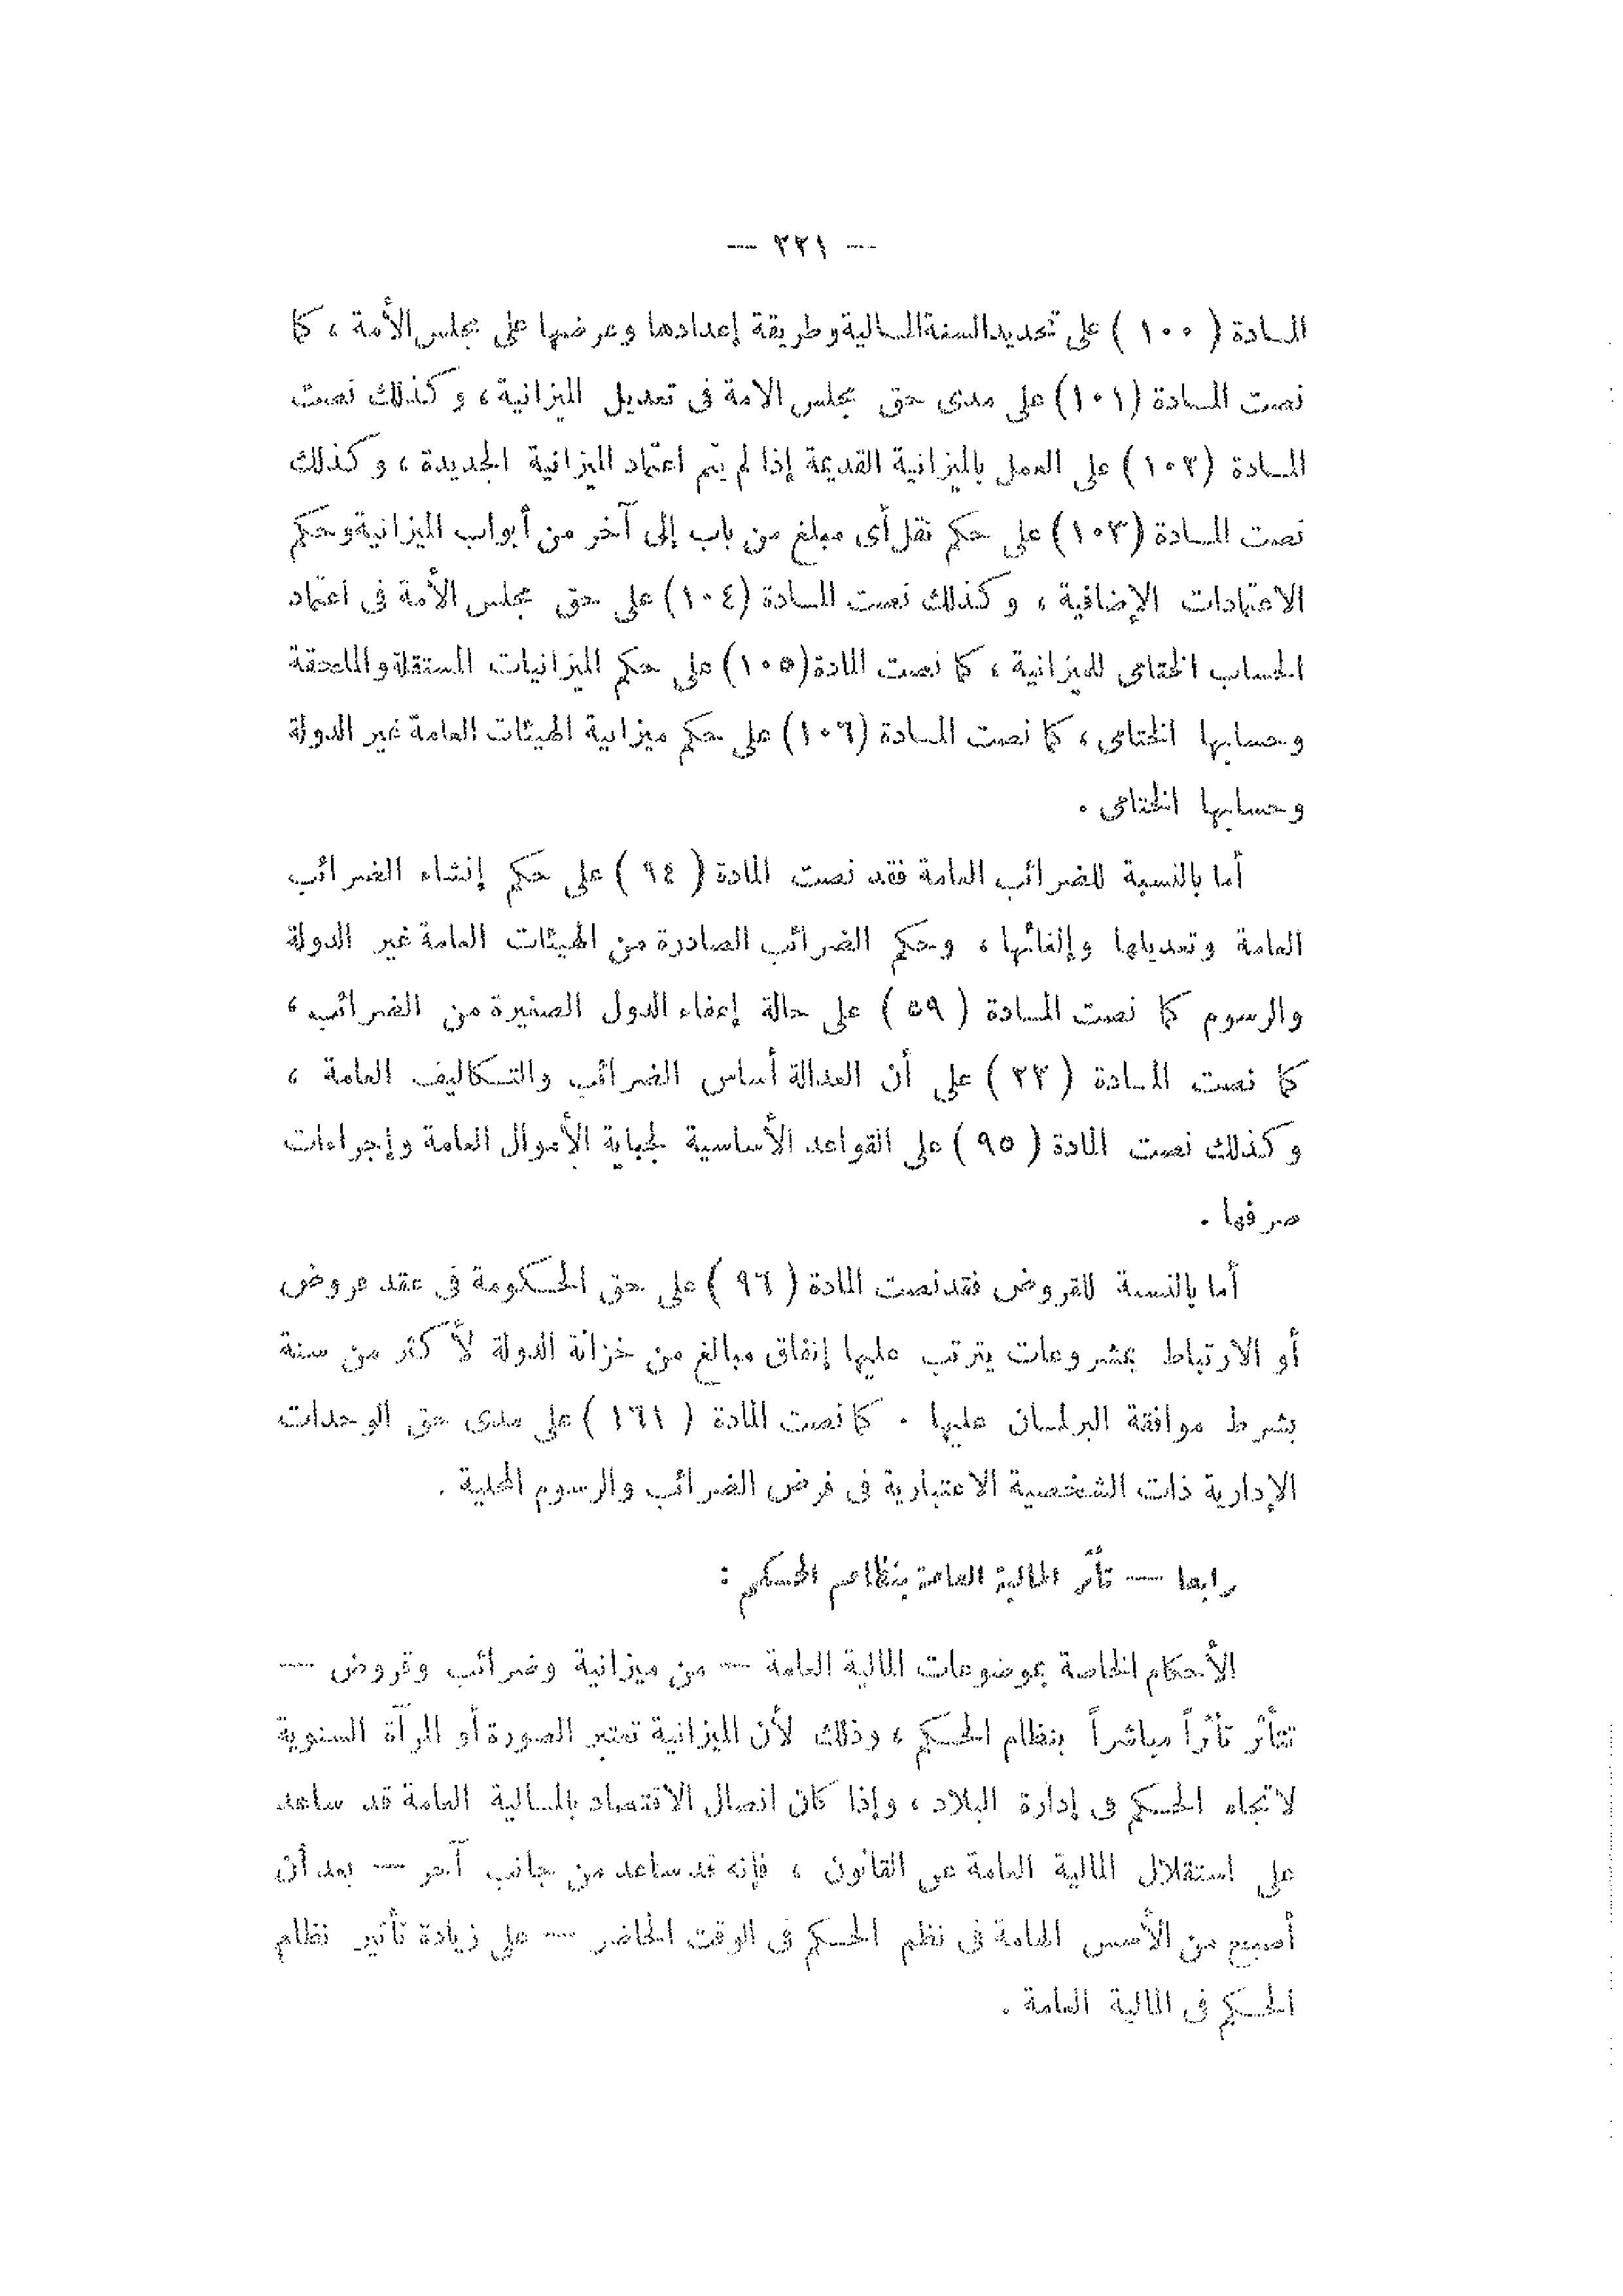 — ٢٢١ —
المادة ( ١٠٠ ) على تحديد السنة المالية وطريقة إعدادها وعرضها على مجلس الأمة ، كما
نصت المادة (١٠١) على مدى حق مجلس الامة فى تعديل الميزانية ، وكذلك نصت
المادة (١٠٢) على العمل بالميزانية القديمة إذا لم يتم اعتماد الميزانية الجديدة ، وكذلك
نصت المادة (١٠٣) على حكم نقل أى مبلغ من باب إلى آخر من أبواب الميزانية وحكم
الاعتمادات الإضافية ، وكذلك نصت المادة (١٠٤) على حق مجلس الأمة فى اعتماد
الحساب الختامى للميزانية ، كما نصت المادة (١٠٥) على حكم الميزانيات المستقلة والملحقة
وحسابها الختامى ، كما نصت المادة (١٠٦) على حكم ميزانية الهيئات العامة غير الدولة
وحسابها الختامى .
أما بالنسبة للضرائب العامة فقد نصت المادة ( ٩٤ ) على حكم إنشاء الضرائب
العامة وتعديلها وإلغائها ، وحكم الضرائب الصادرة من الهيئات العامة غير الدولة
والرسوم كما نصت المادة ( ٥٩ ) على حالة إعفاء الدول الصغيرة من الضرائب ،
كما نصت المادة ( ٢٢ ) على أن العدالة أساس الضرائب والتكاليف العامة ،
وكذلك نصت المادة ( ٩٥ ) على القواعد الأساسية لجباية الأموال العامة وإجراءات
صرفها .
أما بالنسبة للقروض فقد نصت المادة ( ٩٦ ) على حق الحكومة فى عقد قروض
أو الارتباط بمشروعات يترتب عليها إنفاق مبالغ من خزانة الدولة لأكثر من سنة
بشرط موافقة البرلمان عليها . كما نصت المادة ( ١٦١ ) على مدى حق الوحدات
الإدارية ذات الشخصية الاعتبارية فى فرض الضرائب والرسوم المحلية .
رابعا — تأثر المالية العامة بنظام الحكم :
الأحكام الخاصة بموضوعات المالية العامة — من ميزانية وضرائب وقروض —
تتأثر تأثراً مباشراً بنظام الحكم ، وذلك لأن الميزانية تعتبر الصورة أو المرآة السنوية
لاتجاه الحكم فى إدارة البلاد ، وإذا كان اتصال الاقتصاد بالمالية العامة قد ساعد
على استقلال المالية العامة عن القانون ، فإنه قد ساعد من جانب آخر — بعد أن
أصبح من الأسس الهامة فى نظم الحكم فى الوقت الحاضر — على زيادة تأثير نظام
الحكم فى المالية العامة .